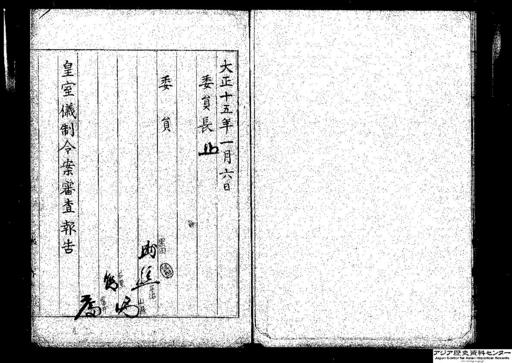 大正十五年一月六日
委員長
委員
皇室儀制令案審査報告
アジア歴史資料センター
Japan Center for Asian Historical Records